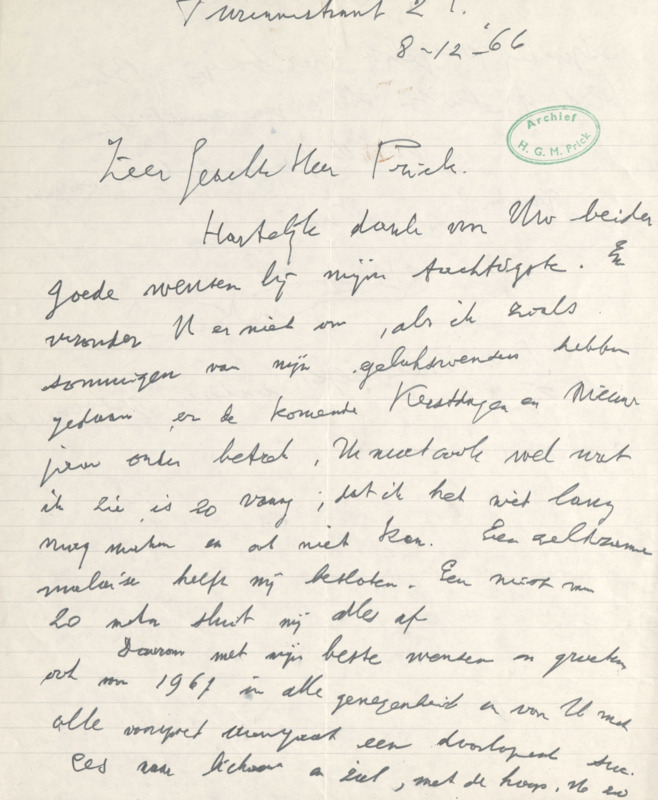 8-12-'66
Archief
H. G. M. Prick
Zeer Geachte Heer Prick.
Hartelijk dank von Uw beider
goede wensen bij mijn tachtigste. En
veronder U er niet om, als ik zoals
sommigen van mijn gelukswensen hebben
gedaan er de komende Kerstdagen en Nieuw
jaar onder betrek, U moet ook wel wat
ik zie is zo vaag; dat ik het niet lang
mag maken en ook niet kan. Een zeldzame
malaise heeft mij besloten. Een mist van
20 meter sluit mij alles af
Daarom met mijn beste wensen en groeten
ook van 1967 in alle genegenheid en von U met
alle een doorlopend suc
ces naar lichaam en ziel, met de hoop, U zo